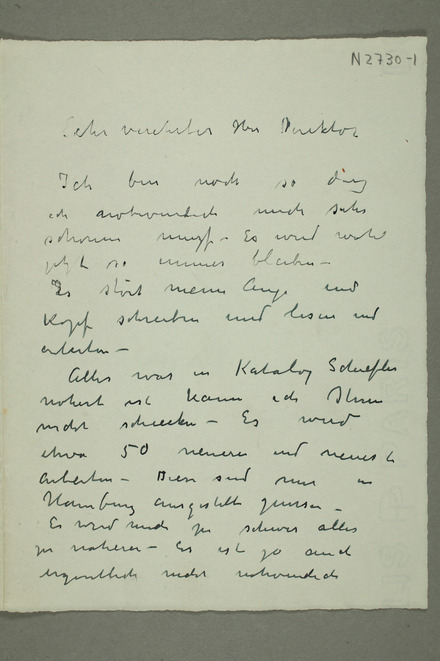 N2730-1
Sehr verehrter Herr Direktor
Ich bin noch so
ich notwendich mich sehr
schonen muss – Es wird wohl
jetzt so immer bleiben –
Es stört meine Auge und
Kopf schreiben und lesen und
arbeiten –
Alles was in Katalog Schiefler
notiert ist kann ich Ihnen
nicht schicken – Es wird
etwa 50 neuere und neueste
Arbeiten – Diese sind nur in
Hamburg ausgestellt gewesen –
Es wird mich zu schwer alles
zu notieren – Es ist ja auch
eigentlich nicht notwendich